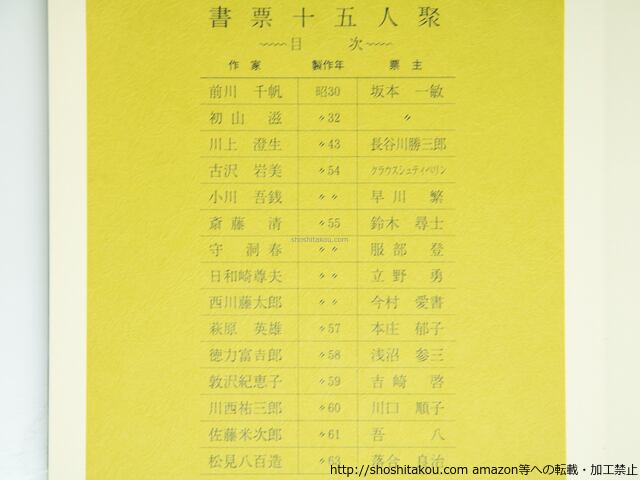 書票十五人聚
目次
作家 製作年 票主
前川千帆 昭30 坂本一敏
初山滋 〃32 〃
川上澄生 〃43 長谷川勝三郎
古沢岩美 〃54 クラウスシュティベリン
小川吾銭 〃〃 早川繁
斎藤清 〃55 鈴木尋士
守洞春 〃〃 服部登
日和崎尊夫 〃〃 立野勇
西川藤太郎 〃〃 今村愛書
萩原英雄 〃57 本庄郁子
徳力富吉郎 〃58 浅沼参三
敦沢紀恵子 〃59 吉崎啓
川西祐三郎 〃60 川口順子
佐藤米次郎 〃61 吾八
松見八百造 〃63 落合良治
shoshitakou.com
http://shoshitakou.com amazon等への転載・加工禁止